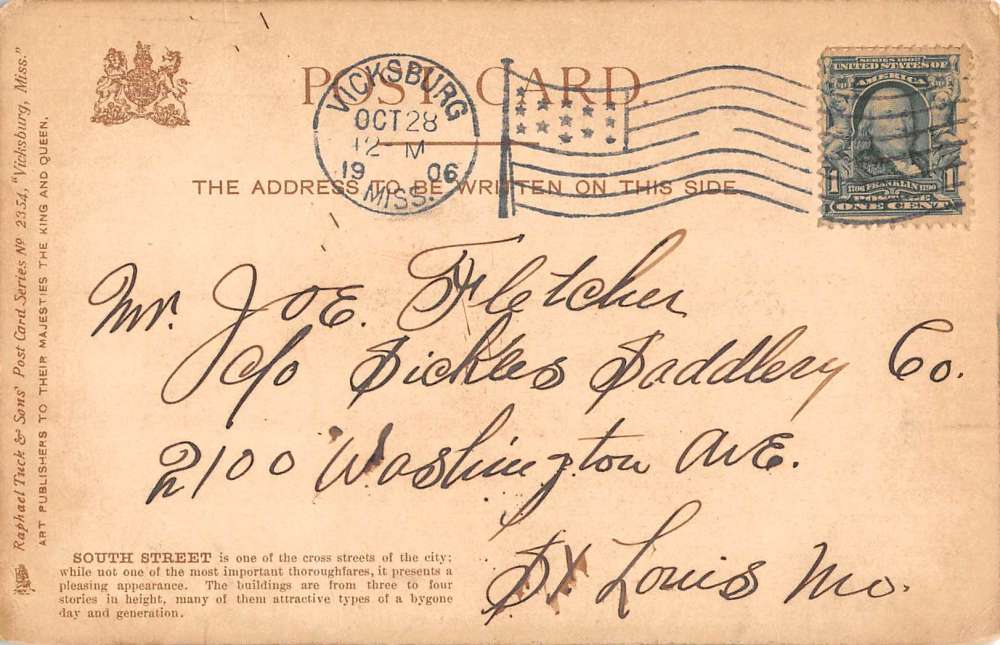 POST CARD.
THE ADDRESS TO BE WRITTEN ON THIS SIDE
VICKSBURG
OCT 28
12 - M
19 06
MISS.
SERIES 1902
UNITED STATES OF
AMERICA
1 1706 FRANKLIN 1790 1
POSTAGE
ONE CENT
Mr. JOE. Fletcher
c/o Sickles Saddlery Co.
2100 Washington AvE.
St Louis Mo.
Raphael Tuck & Sons' Post Card Series No 2354, "Vicksburg, Miss."
ART PUBLISHERS TO THEIR MAJESTIES THE KING AND QUEEN.
SOUTH STREET is one of the cross streets of the city;
while not one of the most important thoroughfares, it presents a
pleasing appearance. The buildings are from three to four
stories in height, many of them attractive types of a bygone
day and generation.